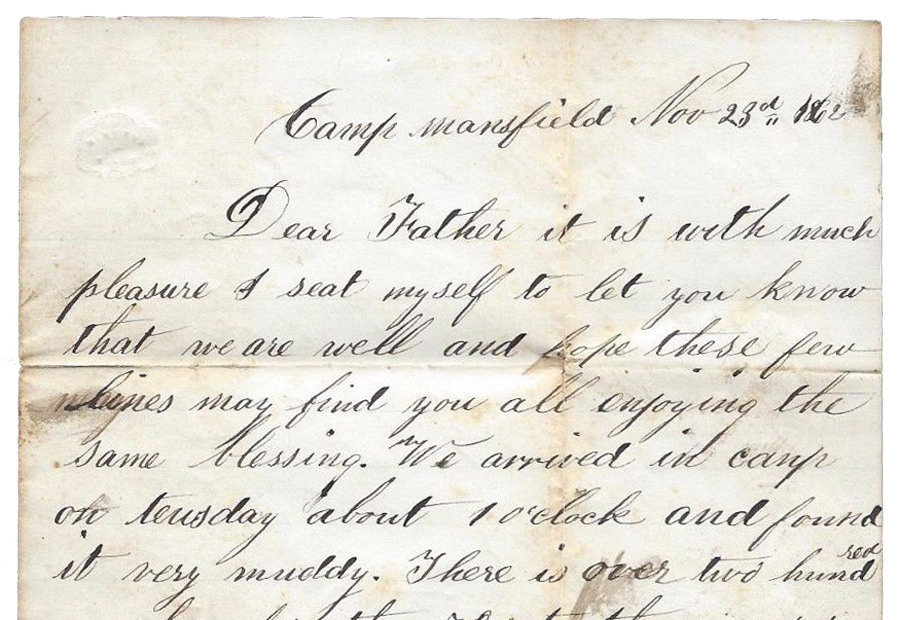 Camp mansfield Nov 23d 1862
Dear Father it is with much
pleasure I seat myself to let you know
that we are well and hope these few
lines may find you all enjoying the
same blessing. We arrived in camp
on teusday about 1 o'clock and found
it very muddy. There is over two hundred